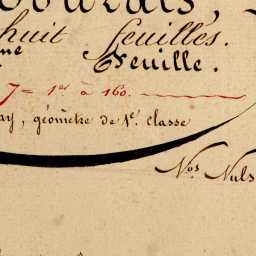 huit feuilles.
ne Feuille.
7 = 1er à 160.
ay, géomètre de 1e. classe
Nos Nuls